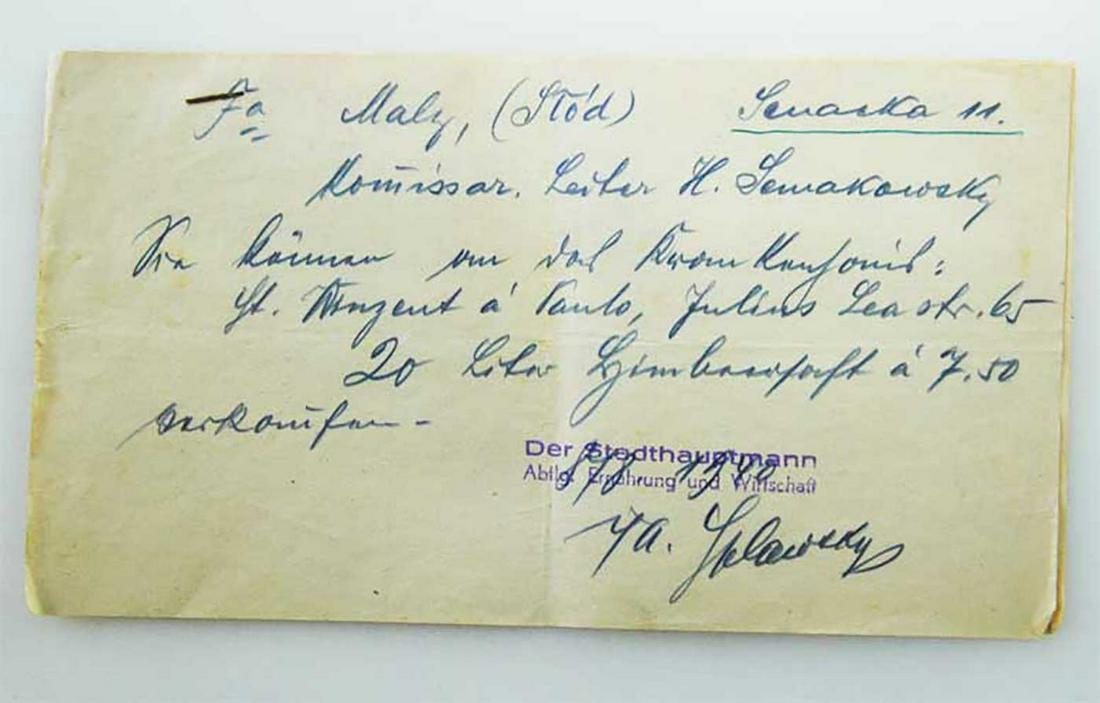 Fa Maly, (Stód) Senacka 11.
Komissar. Leiter H. Semakowsky
Sie können an das Krankenhaus:
St. Vinzent á Paulo, Julius Lea str. 65
20 Liter Himbeersaft á 7.50
verkaufen -
Der Stadthauptmann
Abtlg. Ernährung und Wirtschaft